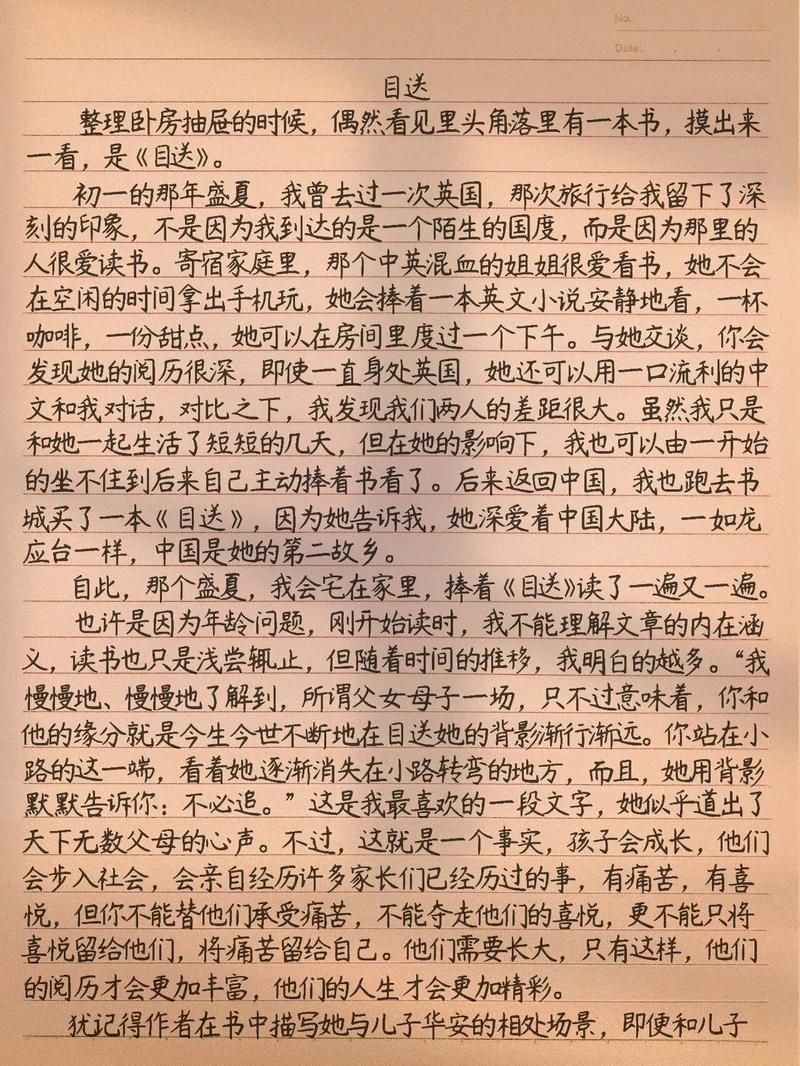 No.
Date.
目送
整理卧房抽屉的时候，偶然看见里头角落里有一本书，摸出来
一看，是《目送》。
初一的那年盛夏，我曾去过一次英国，那次旅行给我留下了深
刻的印象，不是因为我到达的是一个陌生的国度，而是因为那里的
人很爱读书。寄宿家庭里，那个中英混血的姐姐很爱看书，她不会
在空闲的时间拿出手机玩，她会捧着一本英文小说安静地看，一杯
咖啡，一份甜点，她可以在房间里度过一个下午。与她交谈，你会
发现她的阅历很深，即使一直身处英国，她还可以用一口流利的中
文和我对话，对比之下，我发现我们两人的差距很大。虽然我只是
和她一起生活了短短的几天，但在她的影响下，我也可以由一开始
的坐不住到后来自己主动捧着书看了。后来返回中国，我也跑去书
城买了一本《目送》，因为她告诉我，她深爱着中国大陆，一如龙
应台一样，中国是她的第二故乡。
自此，那个盛夏，我会宅在家里，捧着《目送》读了一遍又一遍。
也许是因为年龄问题，刚开始读时，我不能理解文章的内在涵
义，读书也只是浅尝辄止，但随着时间的推移，我明白的越多。“我
慢慢地、慢慢地了解到，所谓父女母子一场，只不过意味着，你和
他的缘分就是今生今世不断地在目送她的背影渐行渐远。你站在小
路的这一端，看着她逐渐消失在小路转弯的地方，而且，她用背影
默默告诉你：不必追。”这是我最喜欢的一段文字，她似乎道出了
天下无数父母的心声。不过，这就是一个事实，孩子会成长，他们
会步入社会，会亲自经历许多家长们已经历过的事，有痛苦，有喜
悦，但你不能替他们承受痛苦，不能夺走他们的喜悦，更不能只将
喜悦留给他们，将痛苦留给自己。他们需要长大，只有这样，他们
的阅历才会更加丰富，他们的人生才会更加精彩。
犹记得作者在书中描写她与儿子华安的相处场景，即便和儿子